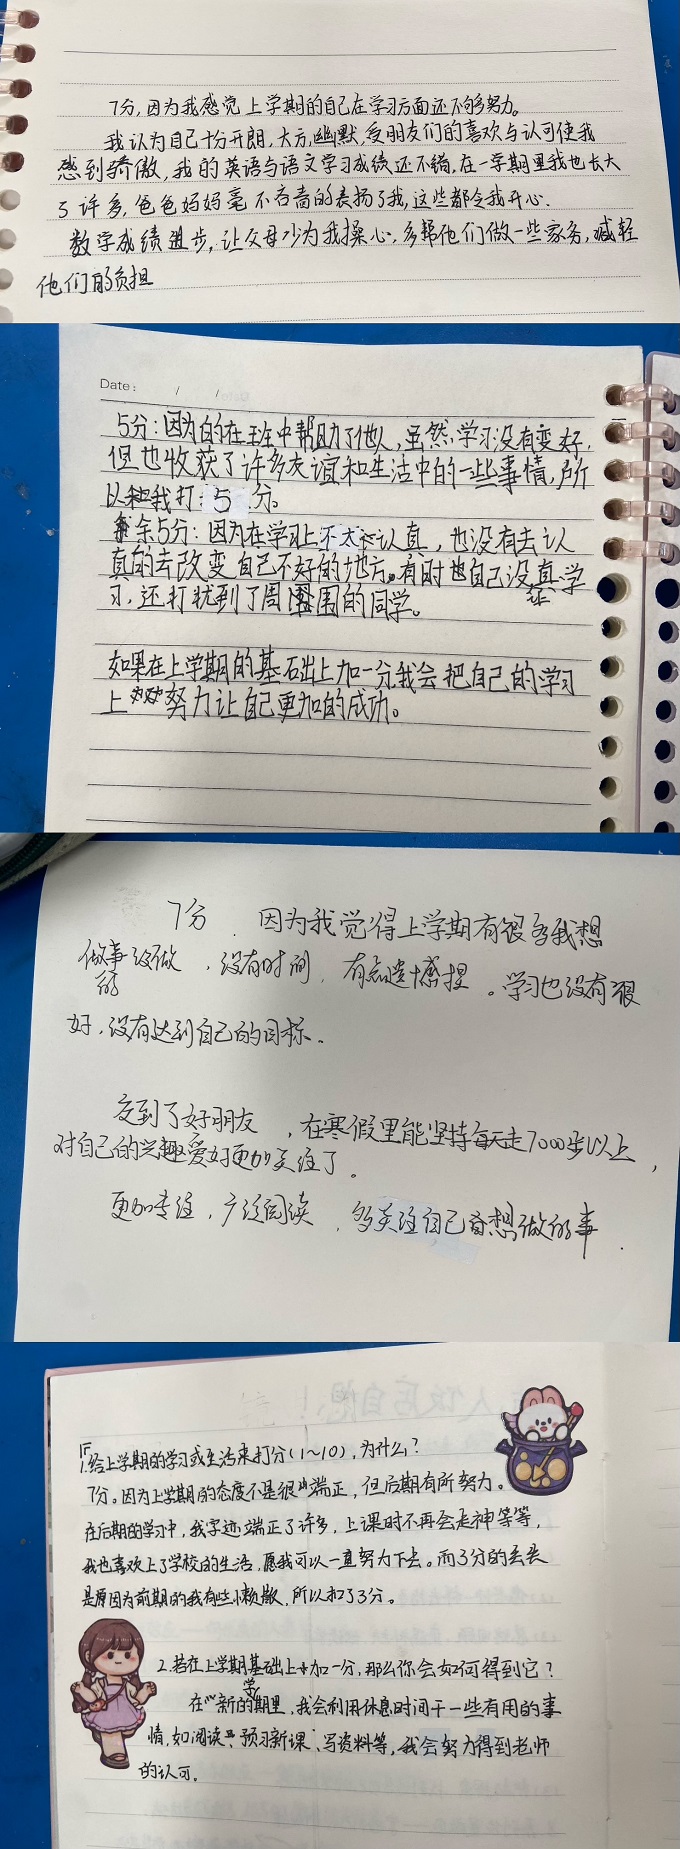 7分,因为我感觉上学期的自己在学习方面还不够努力。
我认为自己十分开朗,大方,幽默,受朋友们的喜欢与认可使我
感到骄傲,我的英语与语文学习成绩还不错,在一学期里我也长大
了许多,爸爸妈妈毫不吝啬的表扬了我,这些都令我开心.
数学成绩进步,让父母少为我操心,多帮他们做一些家务,减轻
他们的负担
Date:
5分:因为的在班中帮助了他人,虽然学习没有变好,
但也收获了许多友谊和生活中的一些事情,所
以我打5分。
余5分:因为在学习上不太认真,也没有去认
真的去改变自己不好的地方。有时自己没真学
习,还打扰到了周围的同学。
如果在上学期的基础上加一分我会把自己的学习
上努力让自己更加的成功。
7分.因为我觉得上学期有很多我想
做的事没做,没有时间,有点遗憾。学习也没有很
好,没有达到自己的目标。
交到了好朋友,在寒假里能坚持每天走7000步以上,
对自己的兴趣爱好更加关注了。
更加专注,广泛阅读,多关注自己想做的事.
1.给上学期的学习或生活来打分(1~10),为什么?
7分。因为上学期的态度不是很端正,但后期有所努力。
在后期的学习中,我字迹端正了许多,上课时不再会走神等等,
我也喜欢上了学校的生活,愿我可以一直努力下去。而3分的丢失
是原因为前期的我有些懒散,所以扣了3分。
2.若在上学期基础上加一分,那么你会如何得到它?
在新的学期里,我会利用休息时间干一些有用的事
情,如阅读、预习新课、写资料等,我会努力得到老师
的认可。